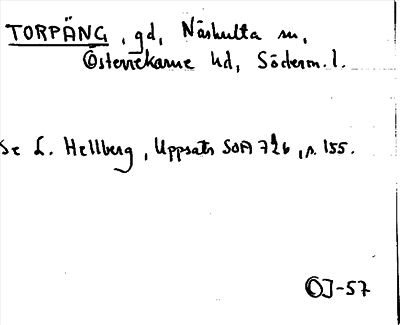 TORPÄNG, gd, Näshulta sn,
Österrekarne hd, Söderm. l.
Se L. Hellberg, Uppsats SOA 726, s. 155.
OJ-57